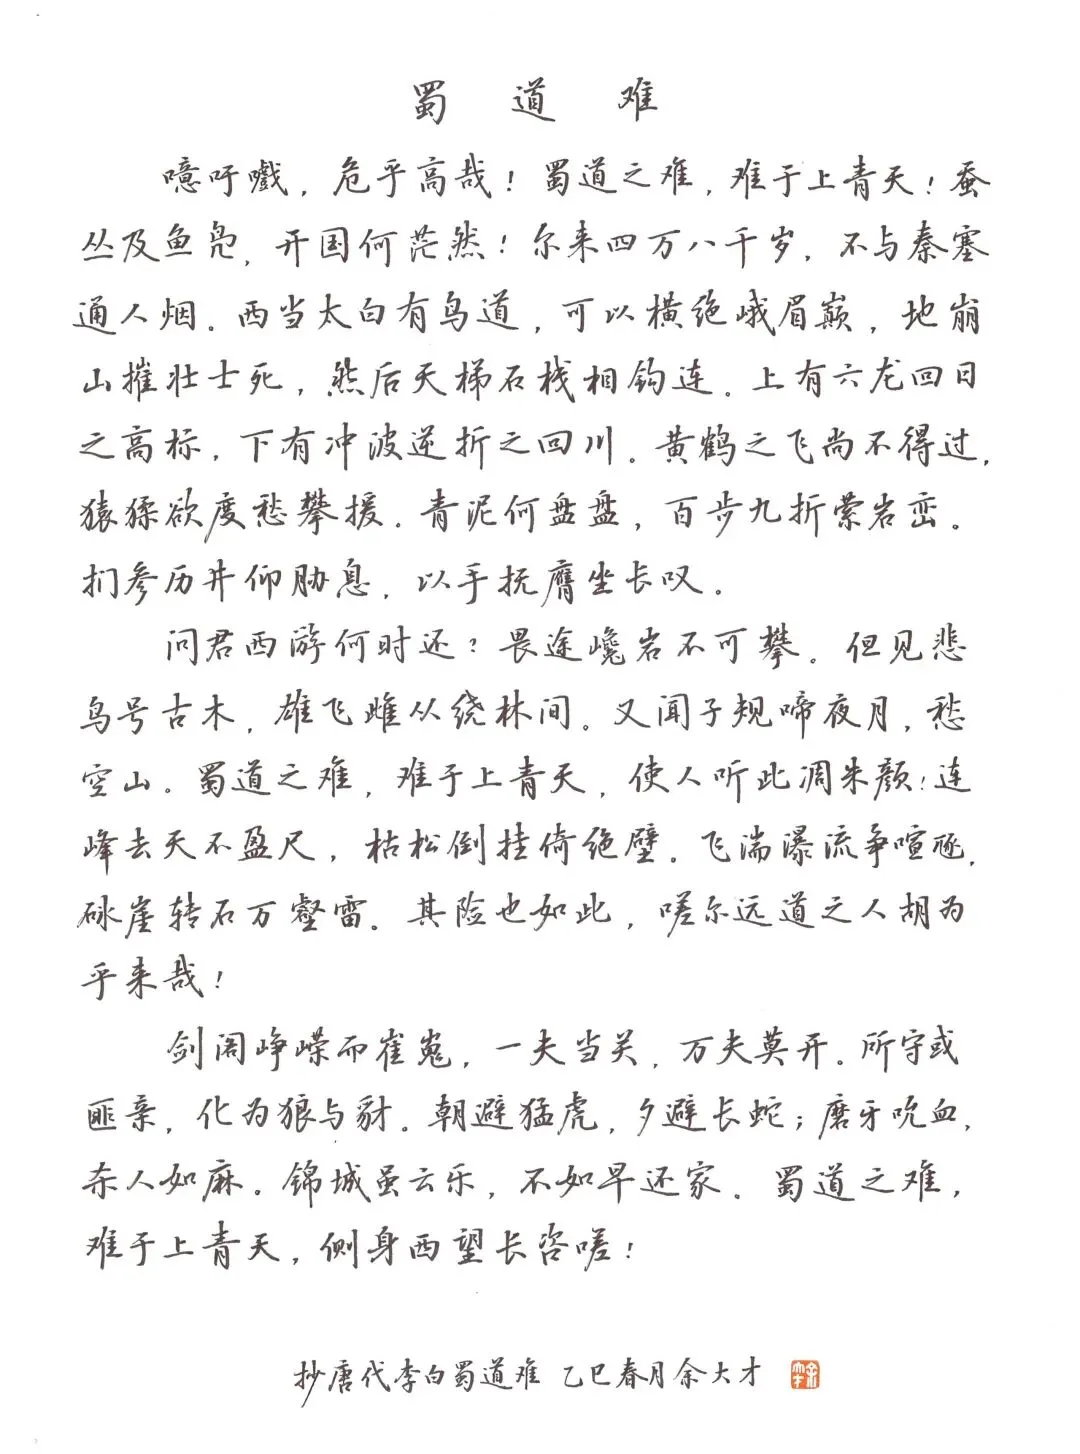 蜀道难
噫吁嚱，危乎高哉！蜀道之难，难于上青天！蚕
丛及鱼凫，开国何茫然！尔来四万八千岁，不与秦塞
通人烟。西当太白有鸟道，可以横绝峨眉巅，地崩
山摧壮士死，然后天梯石栈相钩连。上有六龙回日
之高标，下有冲波逆折之回川。黄鹤之飞尚不得过，
猿猱欲度愁攀援。青泥何盘盘，百步九折萦岩峦。
扪参历井仰胁息，以手抚膺坐长叹。
问君西游何时还？畏途巉岩不可攀。但见悲
鸟号古木，雄飞雌从绕林间。又闻子规啼夜月，愁
空山。蜀道之难，难于上青天，使人听此凋朱颜！连
峰去天不盈尺，枯松倒挂倚绝壁。飞湍瀑流争喧豗，
砯崖转石万壑雷。其险也如此，嗟尔远道之人胡为
乎来哉！
剑阁峥嵘而崔嵬，一夫当关，万夫莫开。所守或
匪亲，化为狼与豺。朝避猛虎，夕避长蛇；磨牙吮血，
杀人如麻。锦城虽云乐，不如早还家。蜀道之难，
难于上青天，侧身西望长咨嗟！
抄唐代李白蜀道难 乙巳春月余大才